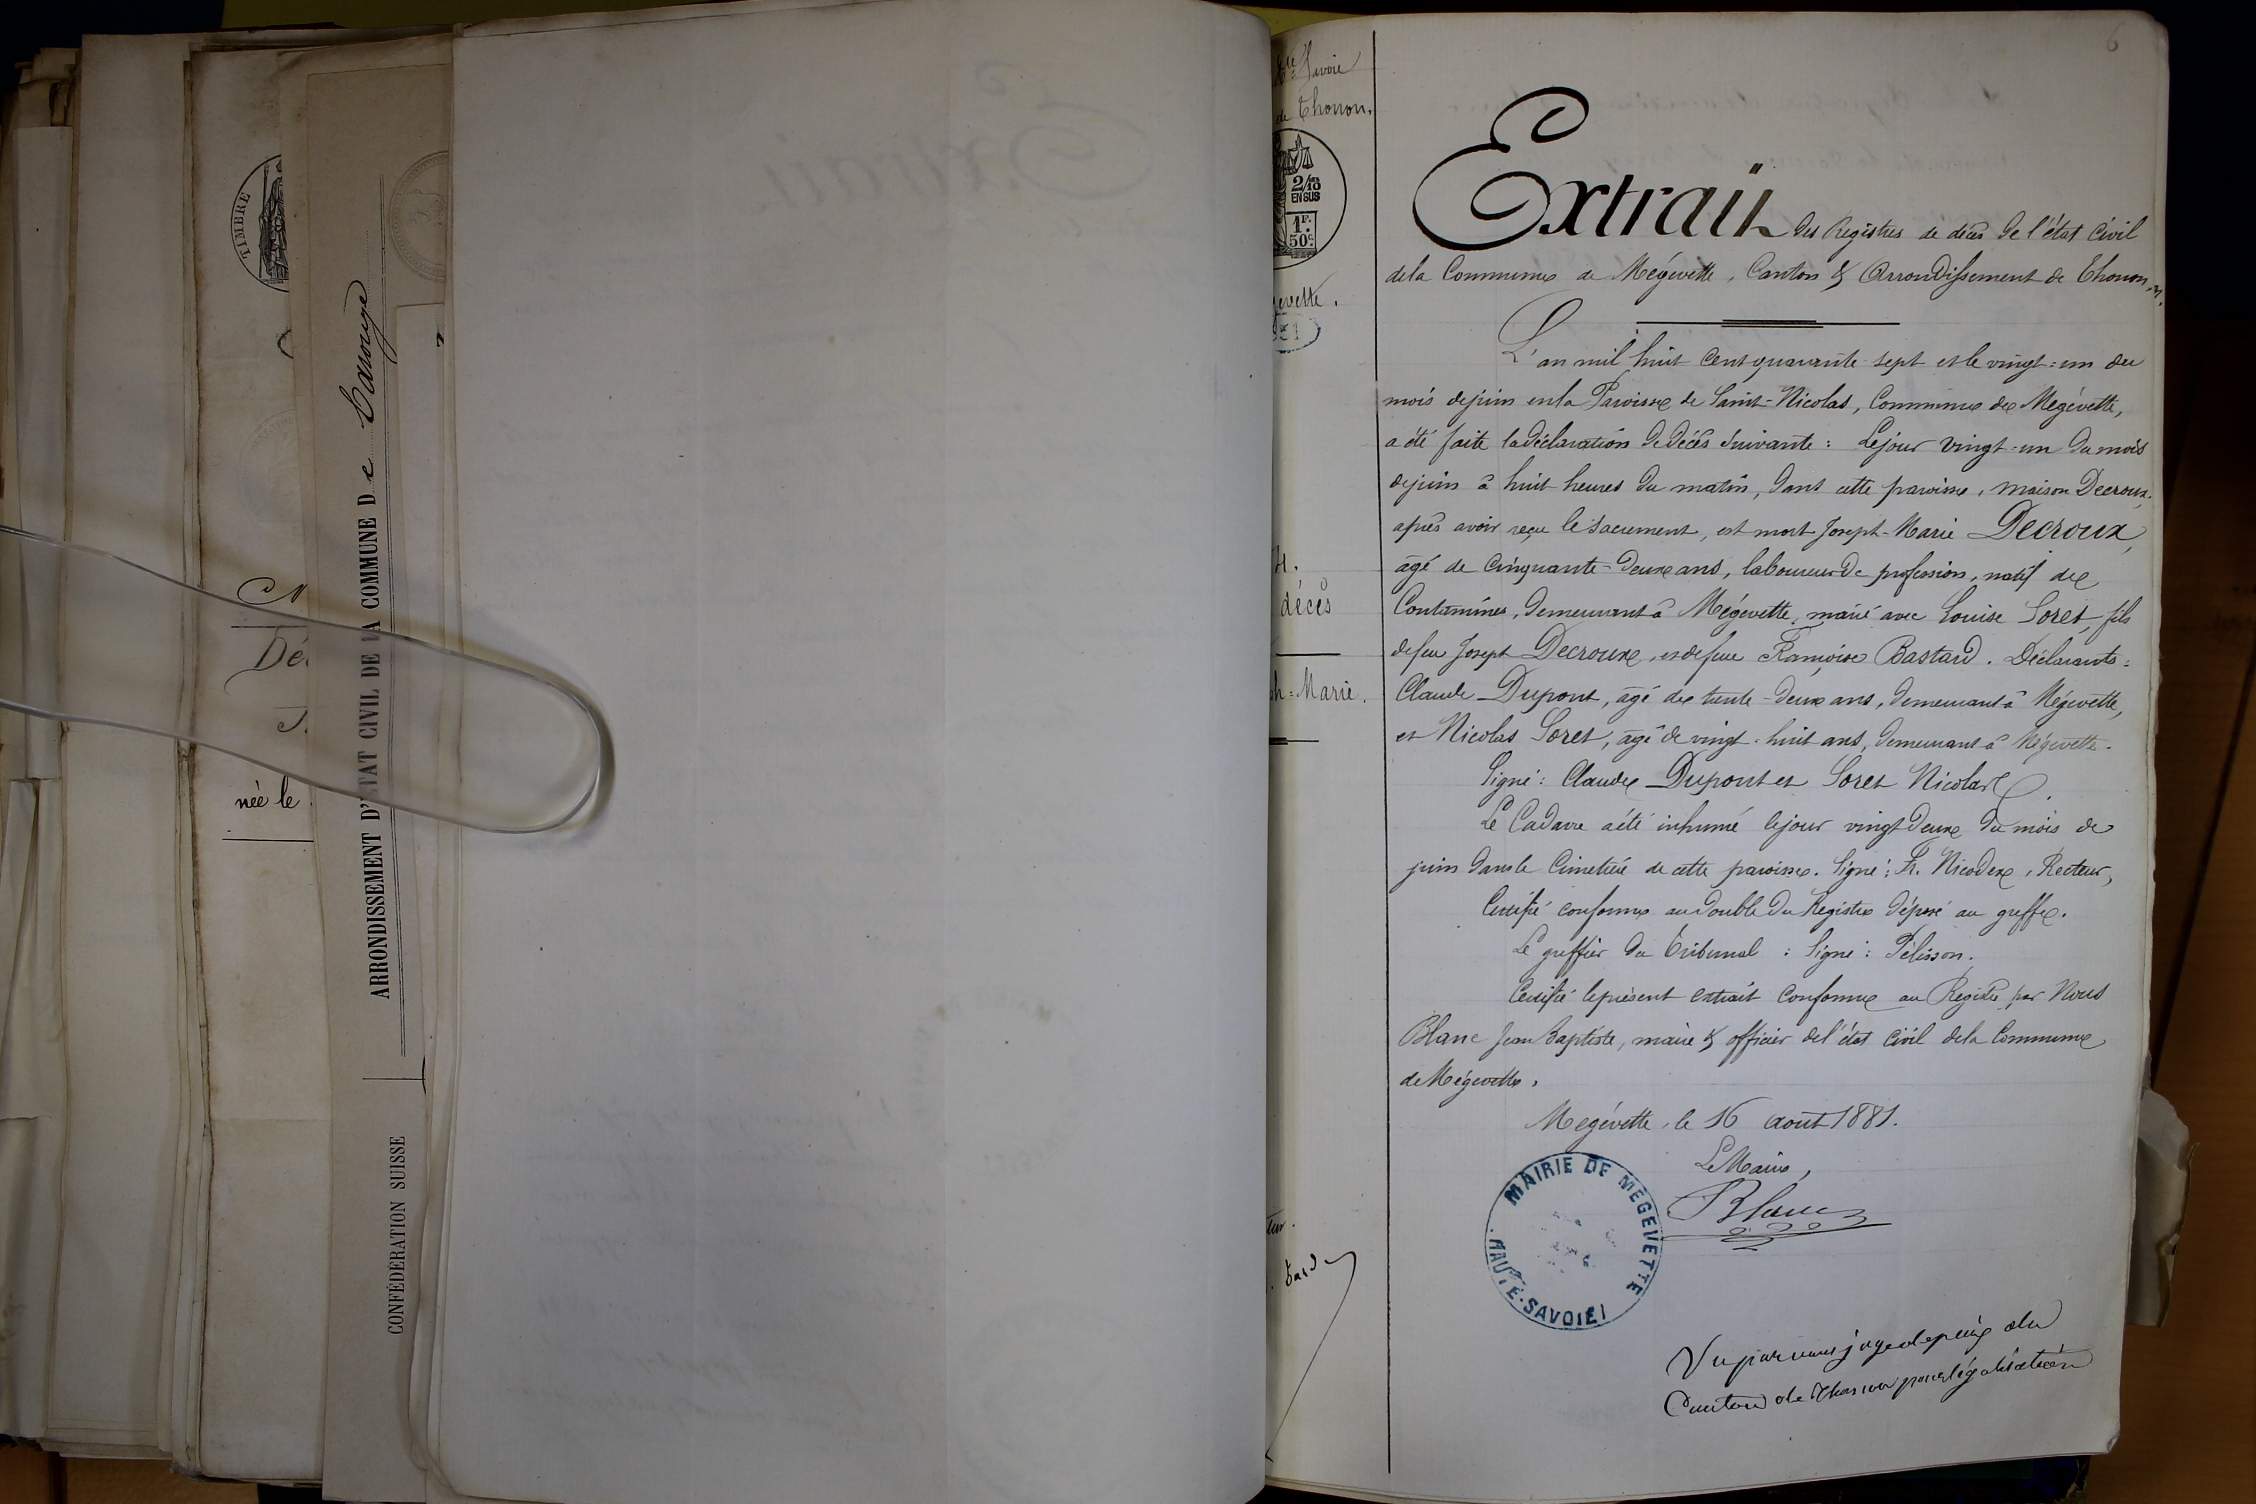 TIMBRE
Dé
née le
ARRONDISSEMENT D'ÉTAT CIVIL DE LA COMMUNE De Carouge
CONFÉDÉRATION SUISSE
6
Hte Savoie
de Thonon.
2/10 EN SUS
1F. 50c
gevette.
décès
ph=Marie.
Extrait des Registres de décès de l'état civil
de la Commune de Mégevette, Canton & Arrondissement de Thonon.
L'an mil huit cent quarante sept et le vingt=un du
mois de juin en la Paroisse de Saint-Nicolas, Commune de Mégevette,
a été faite la déclaration de décès suivante : Le jour vingt-un du mois
de juin à huit heures du matin, dans cette paroisse, maison Decroux,
après avoir reçu le sacrement, est mort Joseph-Marie Decroux,
âgé de cinquante-deux ans, laboureur de profession, natif de
Contamines, demeurant à Mégevette, marié avec Louise Soret, fils
de feu Joseph Decroux, et de feue Françoise Bastard. Déclarants :
Claude Dupont, âgé de trente-deux ans, demeurant à Mégevette,
et Nicolas Soret, âgé de vingt-huit ans, demeurant à Mégevette.
Signé : Claude Dupont et Soret Nicolas.
Le Cadavre a été inhumé le jour vingt deux du mois de
juin dans le Cimetière de cette paroisse. Signé : Fr. Nicodex, Recteur,
Certifié conforme au double du Registre déposé au greffe.
Le greffier du Tribunal : Signé : Pélisson.
Certifié le présent extrait conforme au Registre par Nous
Blanc Jean Baptiste, maire & officier de l'état civil de la Commune
de Mégevette.
Mégevette, le 16 août 1881.
Le Maire,
Blanc
MAIRIE DE MÉGEVETTE
HAUTE-SAVOIE
Vu par nous juge de paix du
Canton de Thonon pour légalisation